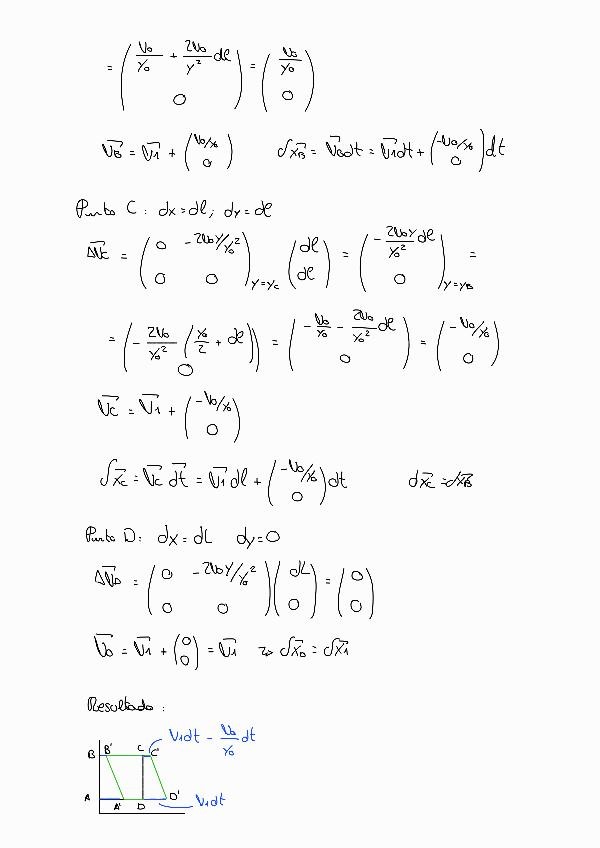 = ( V0/y0 + 2V0/y² dl ; 0 ) = ( V0/y0 ; 0 )
V⃗B = V⃗1 + ( V0/y0 ; 0 )   dx⃗B = V⃗B dt = V⃗1 dt + ( -V0/y0 ; 0 ) dt
Punto C: dx = dl; dy = dl
ΔV⃗c = ( 0  -2V0 y/y0² ; 0  0 )y=yc ( dl ; dl ) = ( - 2V0 y/y0² dl ; 0 )y=yB =
= ( - 2V0/y0² ( y0/2 + dl ) ; 0 ) = ( - V0/y0 - 2V0/y0² dl ; 0 ) = ( -V0/y0 ; 0 )
V⃗c = V⃗1 + ( -V0/y0 ; 0 )
dx⃗c = V⃗c dt = V⃗1 dl + ( -V0/y0 ; 0 ) dt   dx⃗c = dx⃗B
Punto D: dx = dL  dy = 0
ΔV⃗D = ( 0  -2V0 y/y0² ; 0  0 ) ( dL ; 0 ) = ( 0 ; 0 )
V⃗D = V⃗1 + ( 0 ; 0 ) = V⃗1  ⇒ dx⃗D = dx⃗1
Resultado:
V1dt - V0/y0 dt
B B' C C'
A A' D D' V1dt